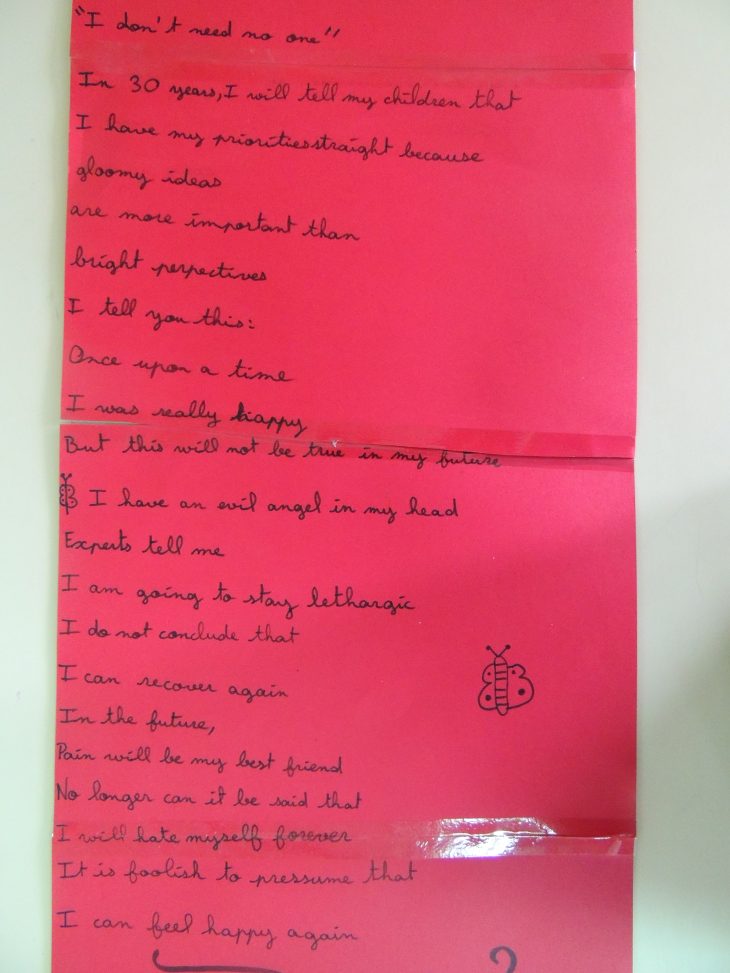 "I don't need no one"
In 30 years, I will tell my children that
I have my priorities straight because
gloomy ideas
are more important than
bright perpectives
I tell you this:
Once upon a time
I was really happy
But this will not be true in my future
I have an evil angel in my head
Experts tell me
I am going to stay lethargic
I do not conclude that
I can recover again
In the future,
Pain will be my best friend
No longer can it be said that
I will hate myself forever
It is foolish to pressume that
I can feel happy again